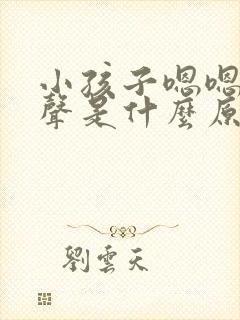 小孩子嗯嗯
聲是什麼原
劉雲天